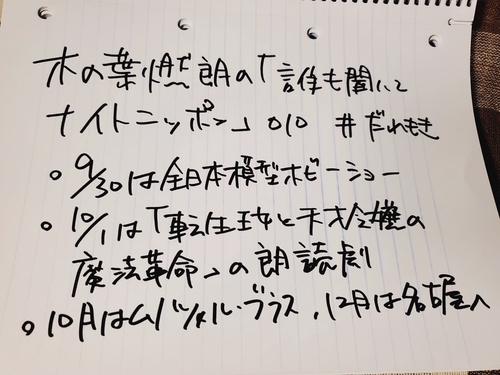 木の葉燃朗の「誰も聞いて
ナイトニッポン」010 #だれもき
○9/30は全日本模型ホビーショー
○10/1は「転生王女と天才令嬢の
魔法革命」の朗読劇
○10月は ブラス、12月は名古屋へ